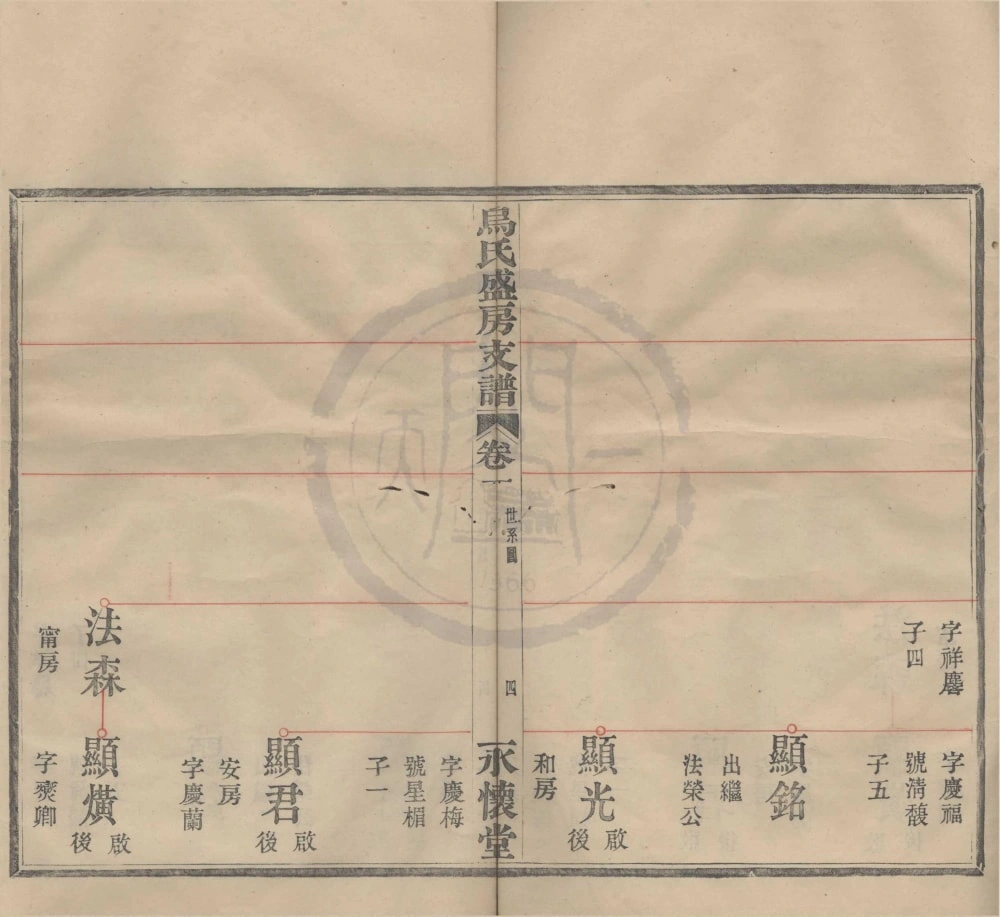 字祥麐
子四
字慶福
號清馥
子五
顯銘
出繼
法榮公
顯光
啟後
和房
烏氏盛房支譜
卷一
世系圖
四
永懷堂
字慶梅
號星楣
子一
顯君
啟後
安房
字慶蘭
法森
甯房
顯熿
啟後
字奭卿